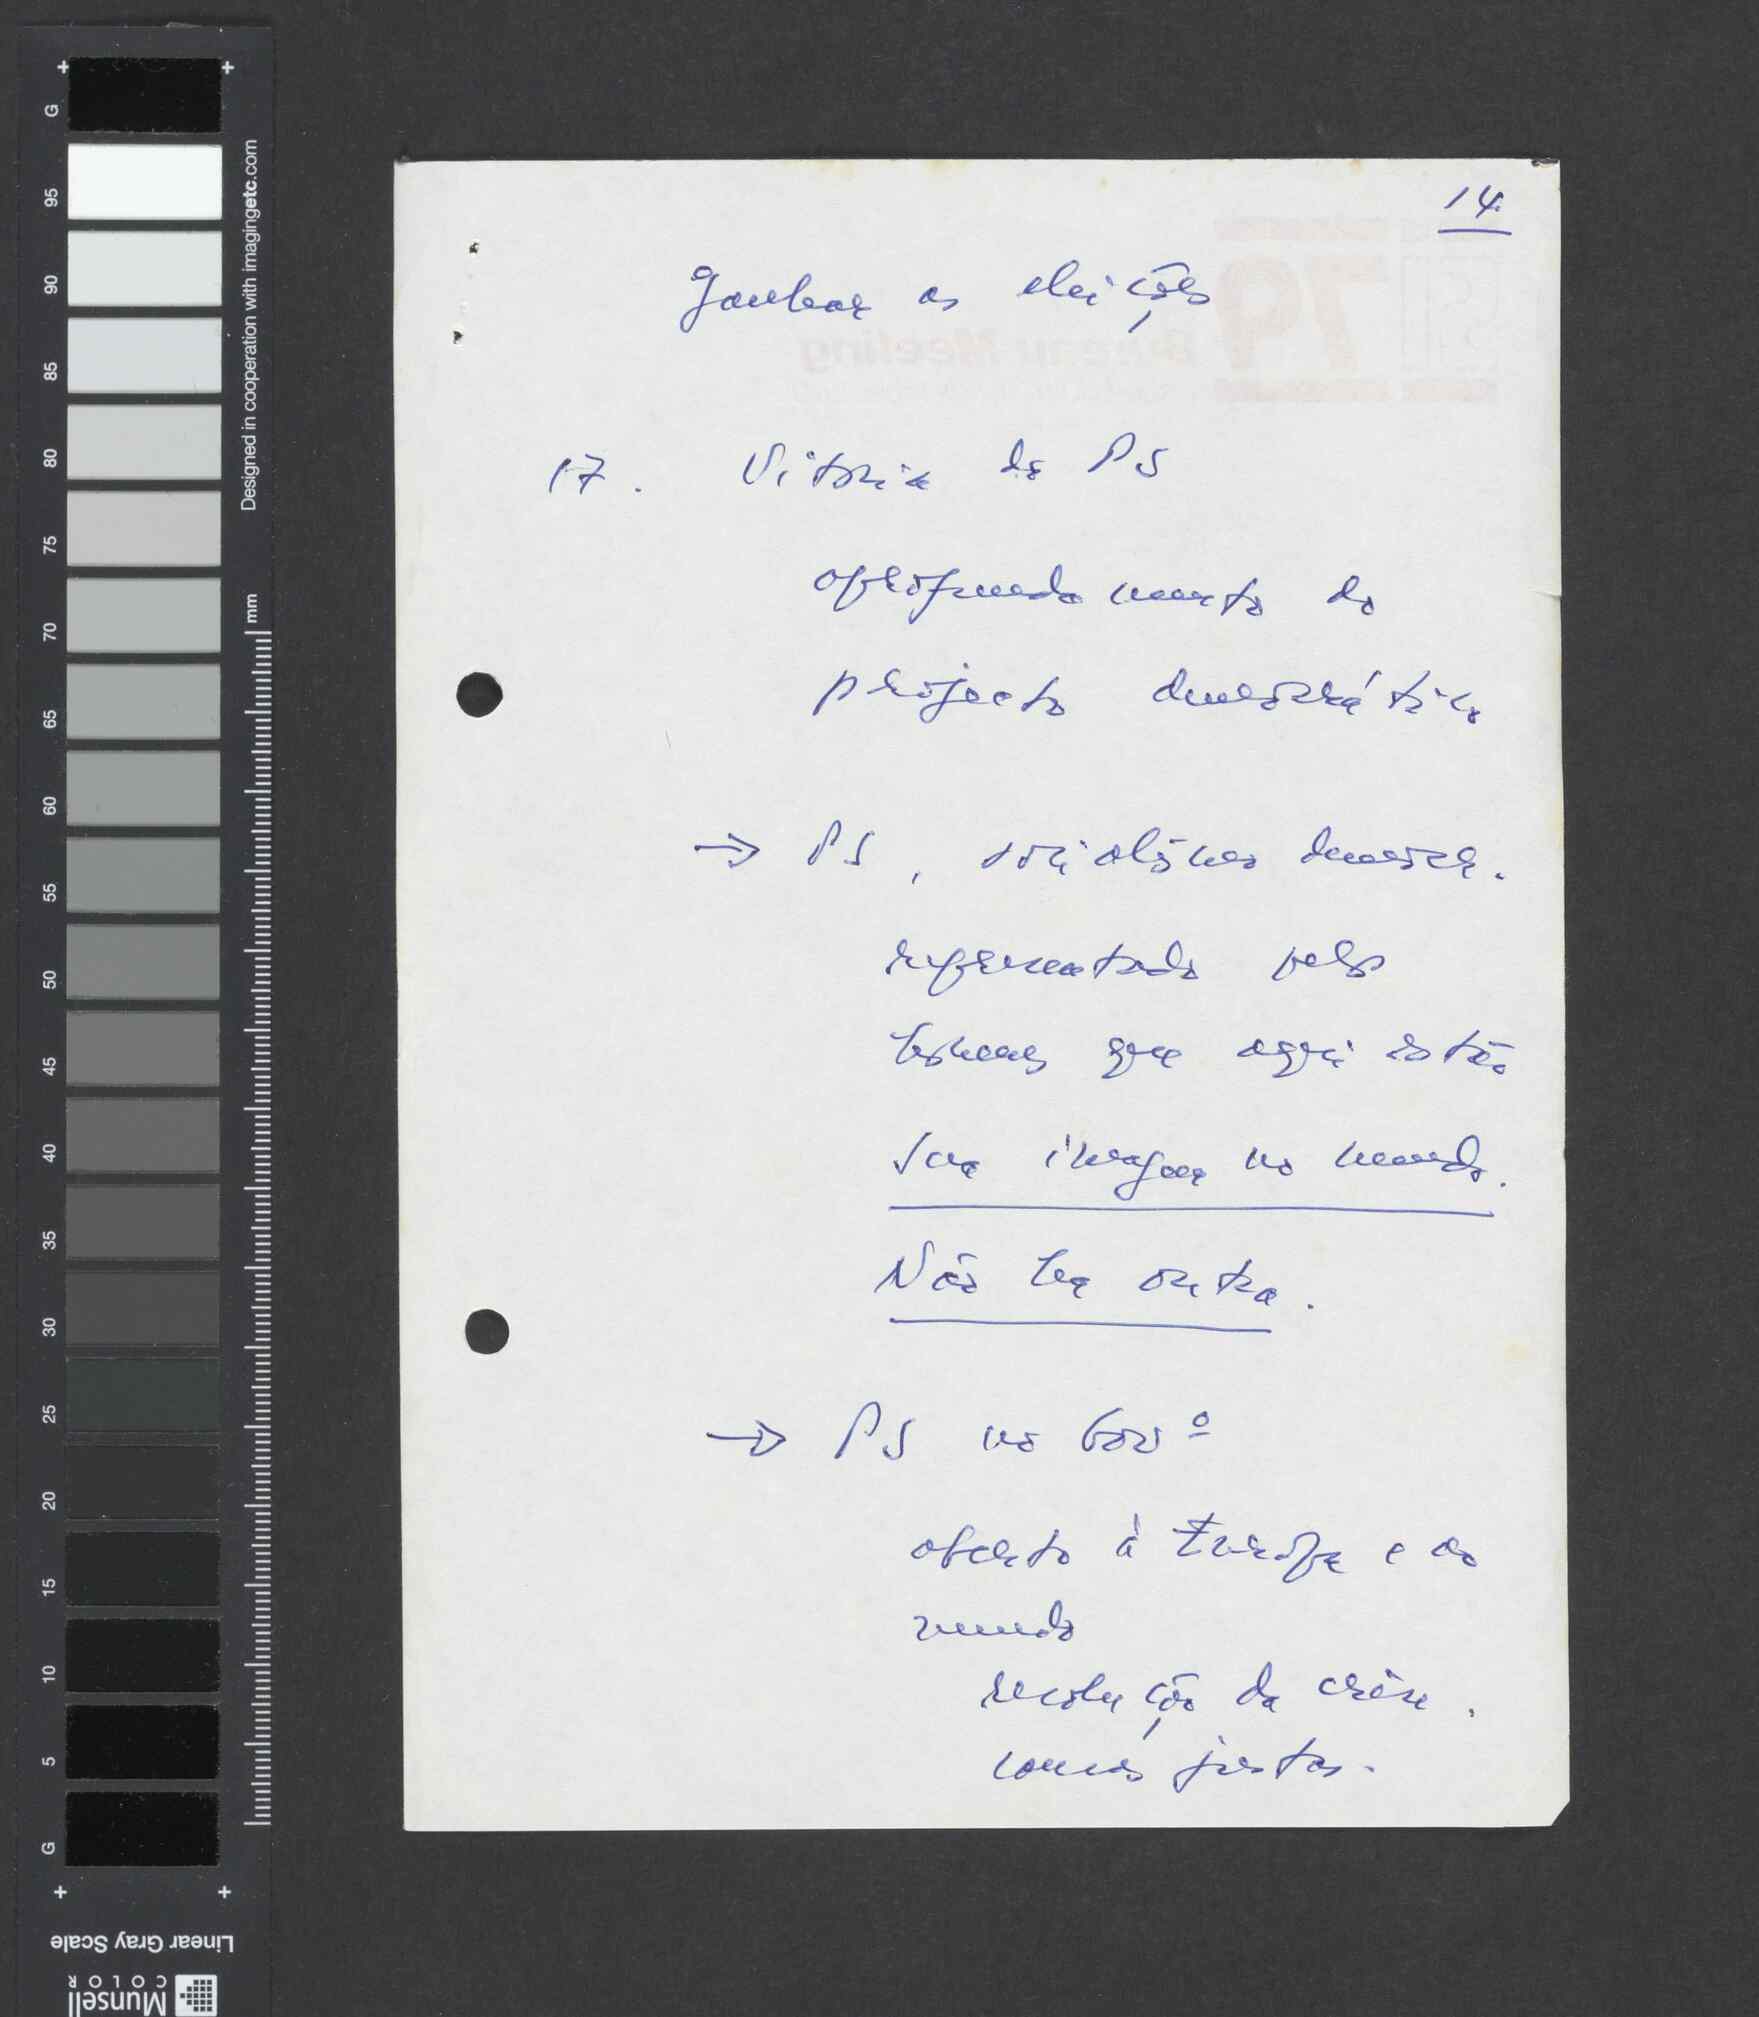 14.
Ganhar as eleições
17. Vitória do PS
aprofundamento do
projecto democrático
→ PS, socialismo democr.
representado pelos
homens que aqui estão
Sua imagem no mundo.
Não há outra.
→ PS no Govº
aberto à Europa e ao
mundo
resolução da crise.
justas.
G
95
90
85
80
75
70
65
60
55
50
45
40
35
30
25
20
15
10
5
G
Designed in cooperation with imagingetc.com
mm
Linear Gray Scale
Munsell
COLOR
79
Bureau Meeting